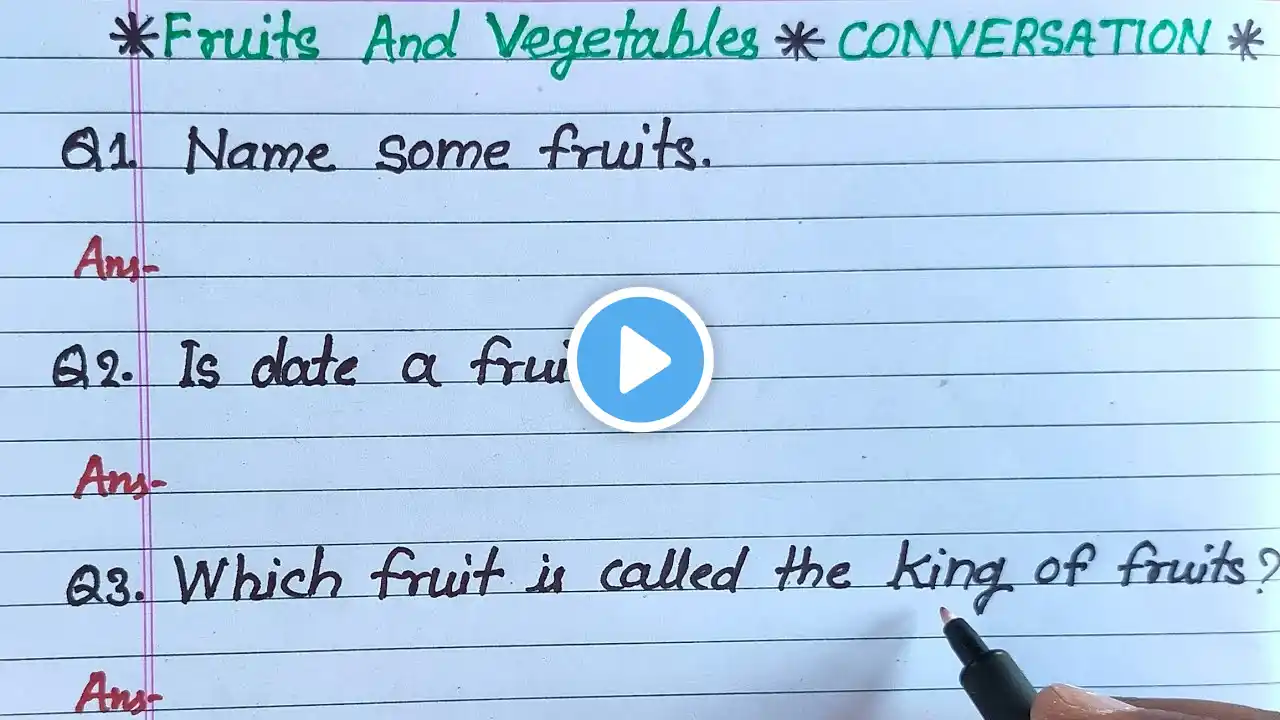 *Fruits And Vegetables * CONVERSATION *
Q1. Name some fruits.
Ans-
Q2. Is date a frui
Ans-
Q3. Which fruit is called the king of fruits?
Ans-